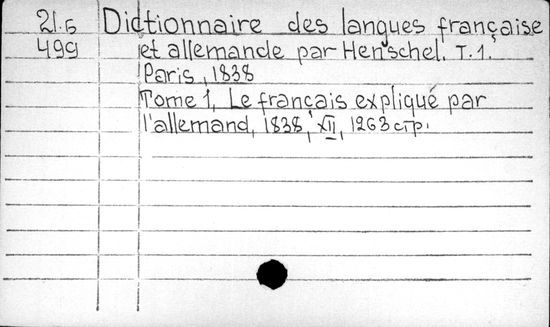 21.6 Dictionnaire des langues française
499 et allemande par Henschel. T. 1.
Paris, 1838
Tome 1, Le français expliqué par
l'allemand, 1838, XII, 1263 стр.